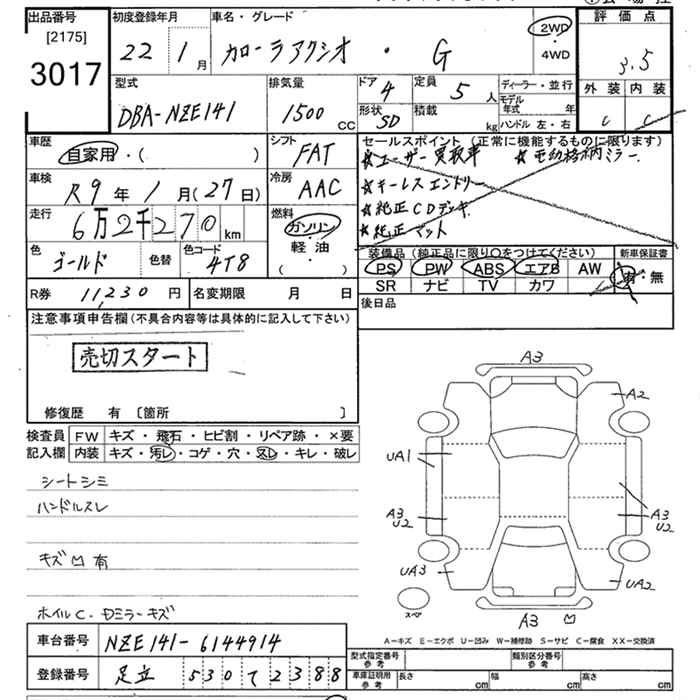 出品番号
[2175]
3017
初度登録年月
22 1月
車名・グレード
カローラアクシオ ・ G
2WD
・
4WD
評価点
3.5
外装 内装
C C
型式
DBA-NZE141
排気量
1500 CC
ドア 4
定員 5人
形状 SD
積載 kg
ディーラー・並行
モデル年式 年
ハンドル 左・右
車歴
自家用・( )
シフト
FAT
車検
R9年 1月(27日)
冷房
AAC
走行
6万2千270 km
燃料
ガソリン
・
軽・油
( )
色
ゴールド
色替
色コード
4T8
セールスポイント(正常に機能するものに限ります)
☆ユーザー買取車 ☆電動格納ミラー
☆キーレスエントリー
☆純正CDデッキ
☆純正マット
装備品(純正品に限り○をつけてください)
PS PW ABS エアB AW
SR ナビ TV カワ
新車保証書
有・無
R券 11230円
名変期限 月 日
後日品
注意事項申告欄(不具合内容等は具体的に記入して下さい)
売切スタート
修復歴 有 〔箇所 〕
検査員記入欄
FW キズ・飛石・ヒビ割・リペア跡・×要
内装 キズ・汚レ・コゲ・穴・スレ・キレ・破レ
シートシミ
ハンドルスレ
キズ凹有
ホイルC・Dミラーキズ
A3
A2
UA1
A3
U2
A3
U2
UA3
UA2
スペア
A3 凹
A-キズ E-エクボ U-凹み W-補修跡 S-サビ C-腐食 XX-交換済
車台番号
NZE141-6144914
登録番号
足立 530 て 2388
型式指定番号
参考
類別区分番号
参考
車庫証明用
参考
長さ cm
幅 cm
高さ cm